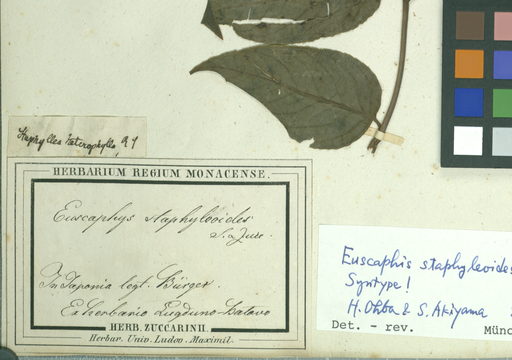 Staphyllea heterophylla, R P
HERBARIUM REGIUM MONACENSE.
Euscaphys staphyleoides
S. & Zucc.
In Japonia legt. Bürger.
Ex herbario Lugduno-Batavo
HERB. ZUCCARINII.
Herbar. Univ. Ludov. Maximil.
Euscaphis staphyleoides
Syntype!
H. Ohba & S. Akiyama
Det. – rev.
Münc